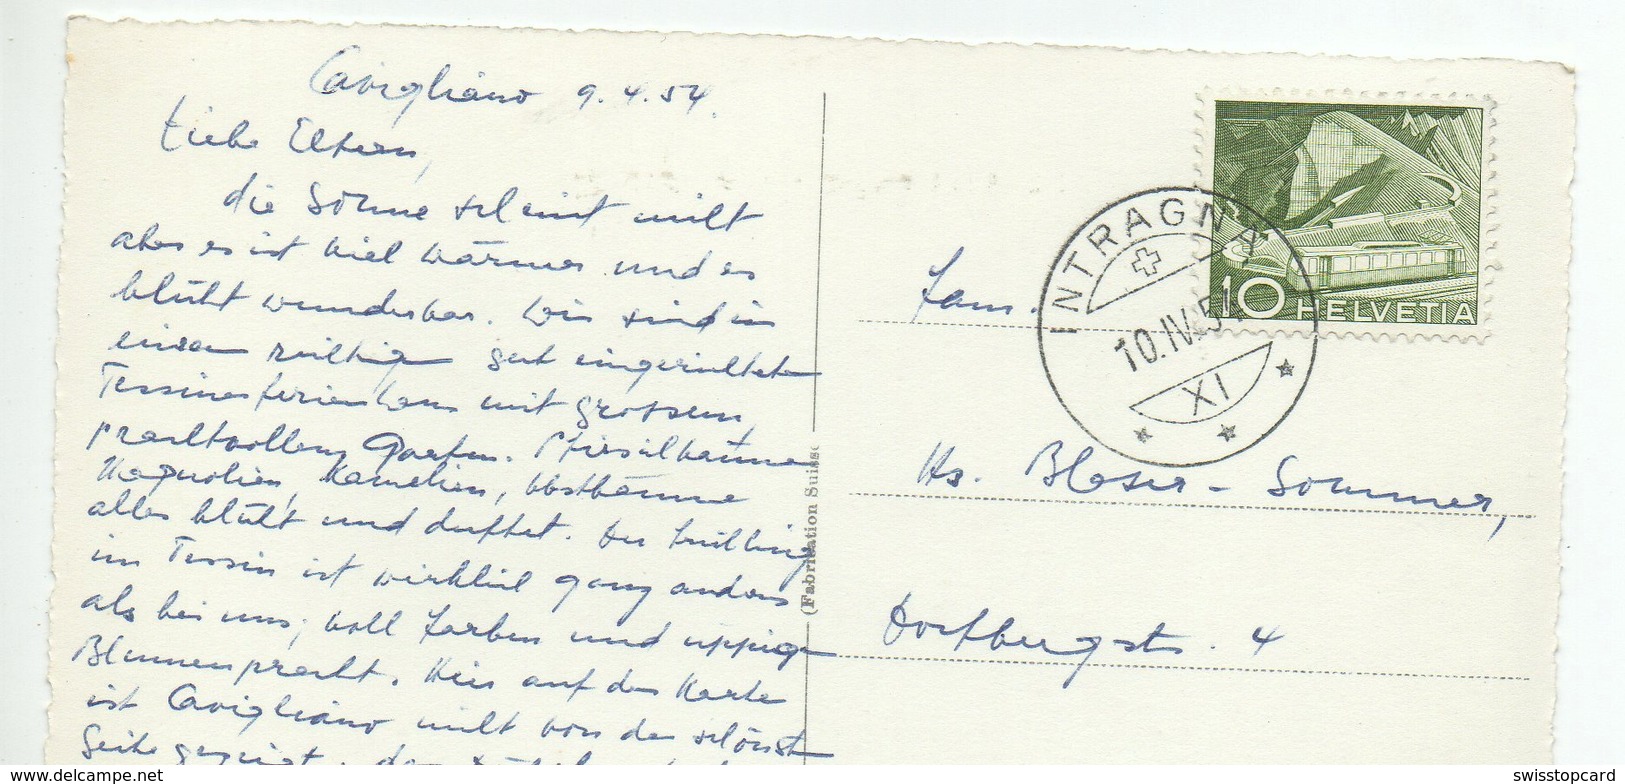 Cavigliano 9.4.54.
Liebe Eltern,
die Sonne scheint nicht
aber es ist viel wärmer und es
blüht wunderbar. Wir sind in
einem richtigen gut eingerichteten
Tessinerferienhaus mit grossem,
prachtvollem Garten. Pfirsichbäume
Magnolien, Kamelien, Obstbäume
alles blüht und duftet. Der Frühling
im Tessin ist wirklich ganz anders
als bei uns, voll Farben und üppiger
Blumenpracht. Hier auf der Karte
ist Cavigliano nicht von der schönsten
Seite gezeigt,
(Fabrication Suisse
INTRAGNA
10.IV.51
XI
10 HELVETIA
Fam.
Hs. Blaser-Sommer,
Dorfbergstr. 4
www.delcampe.net
swisstopcard